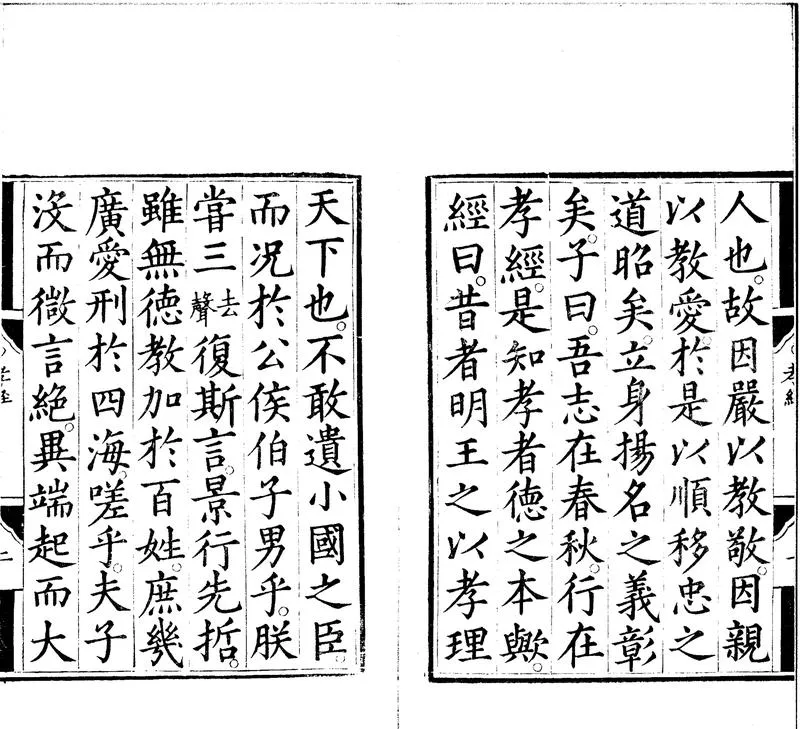 人也。故因嚴以教敬。因親
以教愛。於是以順移忠之
道昭矣。立身揚名之義彰
矣。子曰。吾志在春秋。行在
孝經。是知孝者德之本歟。
經曰。昔者明王之以孝理
孝經
一
天下也。不敢遺小國之臣。
而況於公侯伯子男乎。朕
嘗三去聲復斯言。景行先哲。
雖無德教加於百姓。庶幾
廣愛刑於四海。嗟乎。夫子
沒而微言絕。異端起而大
孝經
二